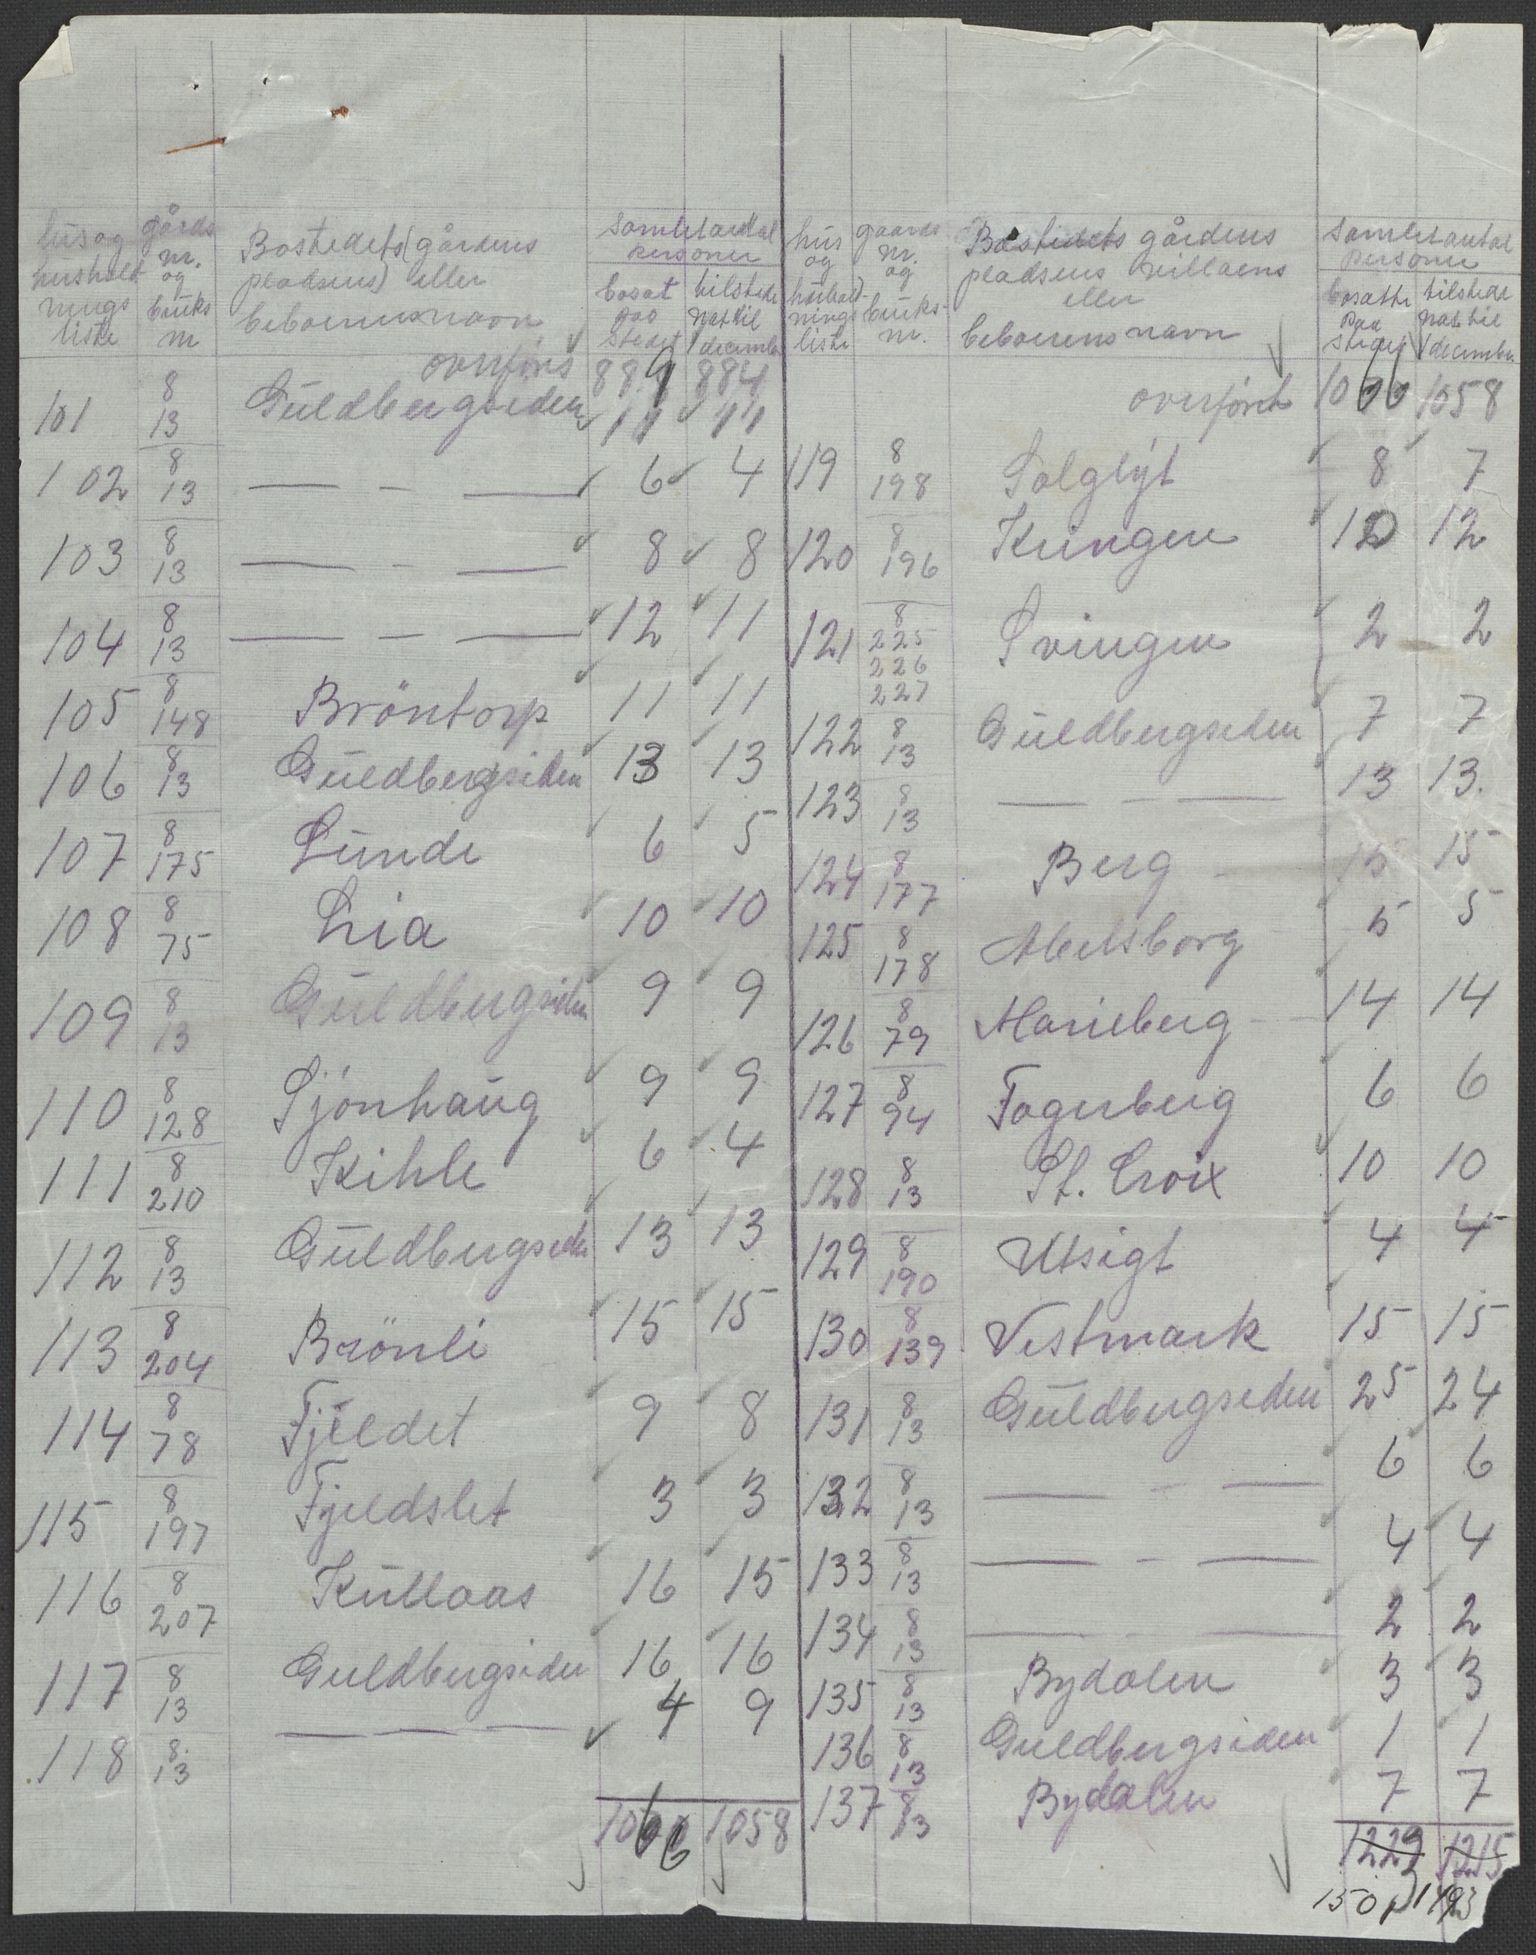 hus og hushold nings liste | gårds nr. og bruks nr | Bostedets (gårdens pladsens) eller beboerens navn | Samlet antal personer | bosat paa stedet | tilstede nat til 1 december
overføres 889 884
101 8/13 Guldbergseden 11 11
102 8/13 — - — 6 4
103 8/13 — - — 8 8
104 8/13 — - — 12 11
105 8/148 Bröntorp 11 11
106 8/13 Guldbergsiden 13 13
107 8/175 Lunde 6 5
108 8/75 Lia 10 10
109 8/13 Guldbergsiden 9 9
110 8/128 Sjönhaug 9 9
111 8/210 Kihle 6 4
112 8/13 Guldbergseden 13 13
113 8/204 Brönli 15 15
114 8/78 Fjeldet 9 8
115 8/197 Fjeldslet 3 3
116 8/207 Kullaas 16 15
117 8/13 Guldbergsiden 16 16
118 8/13 — — — 4 9
1066 1058
hus og hushold- nings liste | gaards nr. og bruks- nr. | Bostedets gårdens pladsens villaens eller beboerens navn | Samlet antal personer | bosatte paa stedet | tilstede nat til 1 december
overført 1066 1058
119 8/198 Solglyt 8 7
120 8/196 Kringen 10 12
121 8/225 226 227 Svingen 2 2
122 8/13 Guldbergseden 7 7
123 8/13 — - — 13 13.
124 8/177 Berg 15 15
125 8/178 Abelsborg 5 5
126 8/79 Marieberg 14 14
127 8/94 Fagerberg 6 6
128 8/13 St. Croix 10 10
129 8/190 Utsigt 4 4
130 8/139 Vestmark 15 15
131 8/13 Guldbergseden 25 24
132 8/13 — - — 6 6
133 8/13 — - — 4 4
134 8/13 — - — 2 2
135 8/13 Bydalen 3 3
136 8/13 Guldbergsiden 1 1
137 8/13 Bydalen 7 7
1229 1215